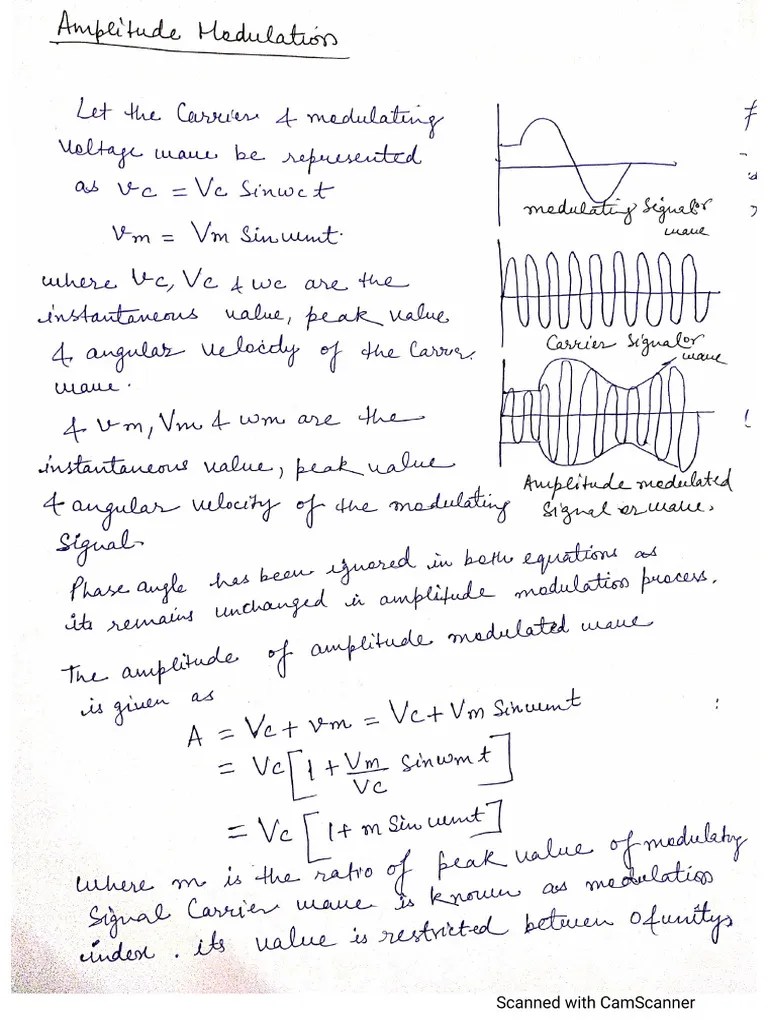 Amplitude Modulation
Let the Carrier & modulating
voltage wave be represented
as vc = Vc Sinwct
vm = Vm Sinwmt.
where vc, Vc & wc are the
instantaneous value, peak value
& angular velocity of the Carrier
wave.
& vm, Vm & wm are the
instantaneous value, peak value
& angular velocity of the modulating
Signal.
modulating Signal or
wave
Carrier Signal or
wave
Amplitude modulated
Signal or wave.
Phase angle has been ignored in both equations as
its remains unchanged in amplitude modulation process.
The amplitude of amplitude modulated wave
is given as
A = Vc + vm = Vc + Vm Sinwmt
= Vc [1 + Vm/Vc Sinwmt]
= Vc [1 + m Sinwmt]
where m is the ratio of peak value of modulatng
Signal Carrier wave is known as modulation
index. its value is restricted between 0 & unity
Scanned with CamScanner